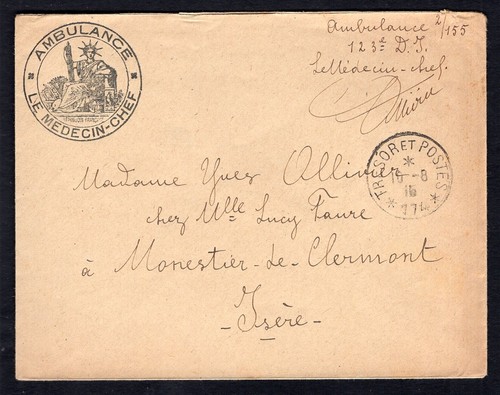 AMBULANCE
LE MEDECIN-CHEF
Ambulance 2/155
123e D.I.
Le Médecin-chef.
Ollivier
TRESOR ET POSTES
-8
16
174
Madame Yves Ollivier
chez Mlle Lucy Faure
à Monestier-de-Clermont
- Isère -